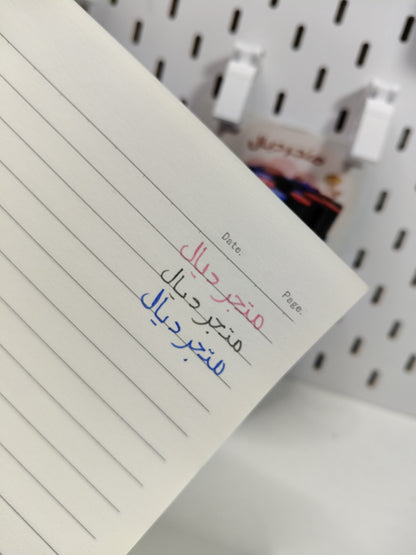 Date.
Page.
متجر ديال
متجر ديال
متجر ديال
متجر ديال